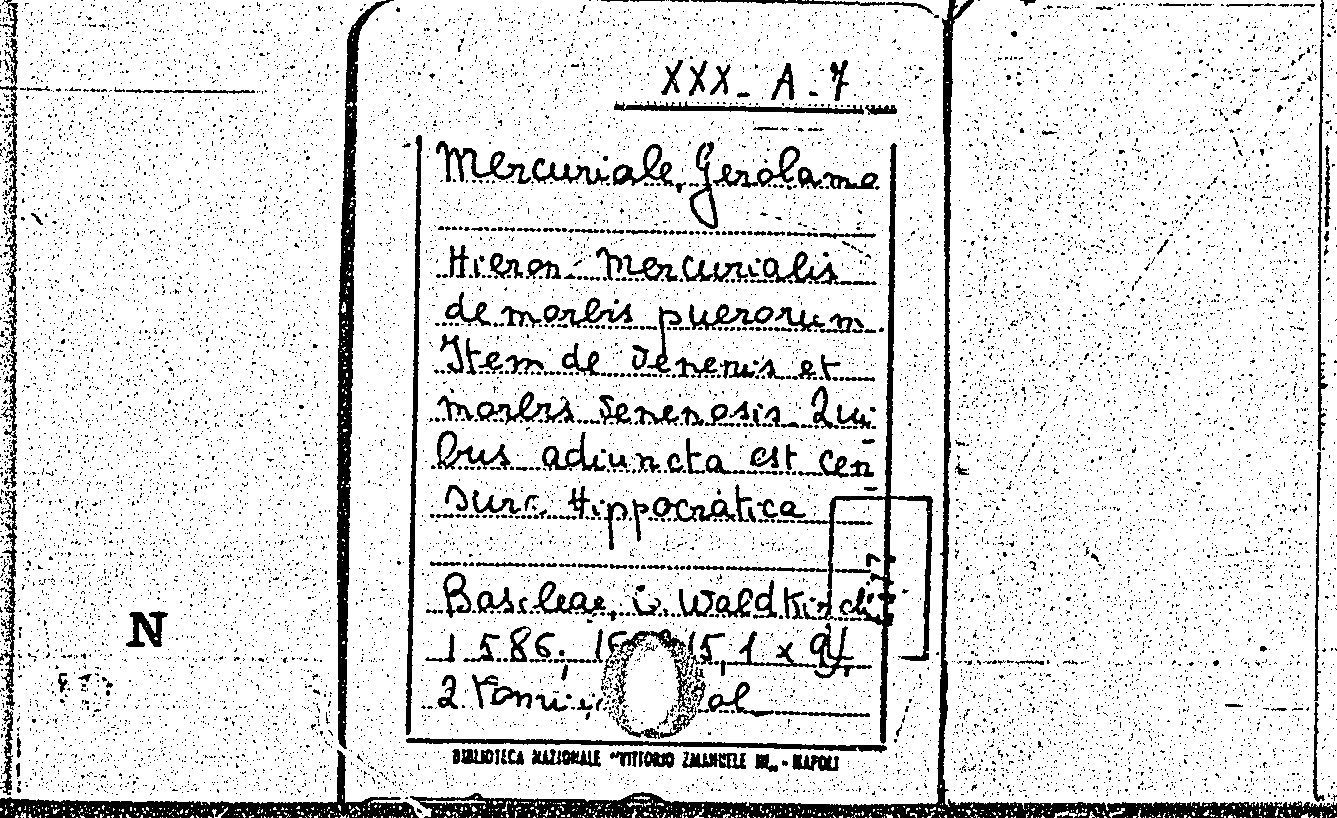 XXX_ A - 7
Mercuriale, Gerolamo
Hieron. Mercurialis
de morbis puerorum
Item de Venenis et
morbis venenosis. Qui
bus adiuncta est cen
sura Hippocratica
Basileae, Waldkirchi
1586; 15,1 x
2 Tomi
BIBLIOTECA NAZIONALE "VITTORIO EMANUELE III„ - NAPOLI
N